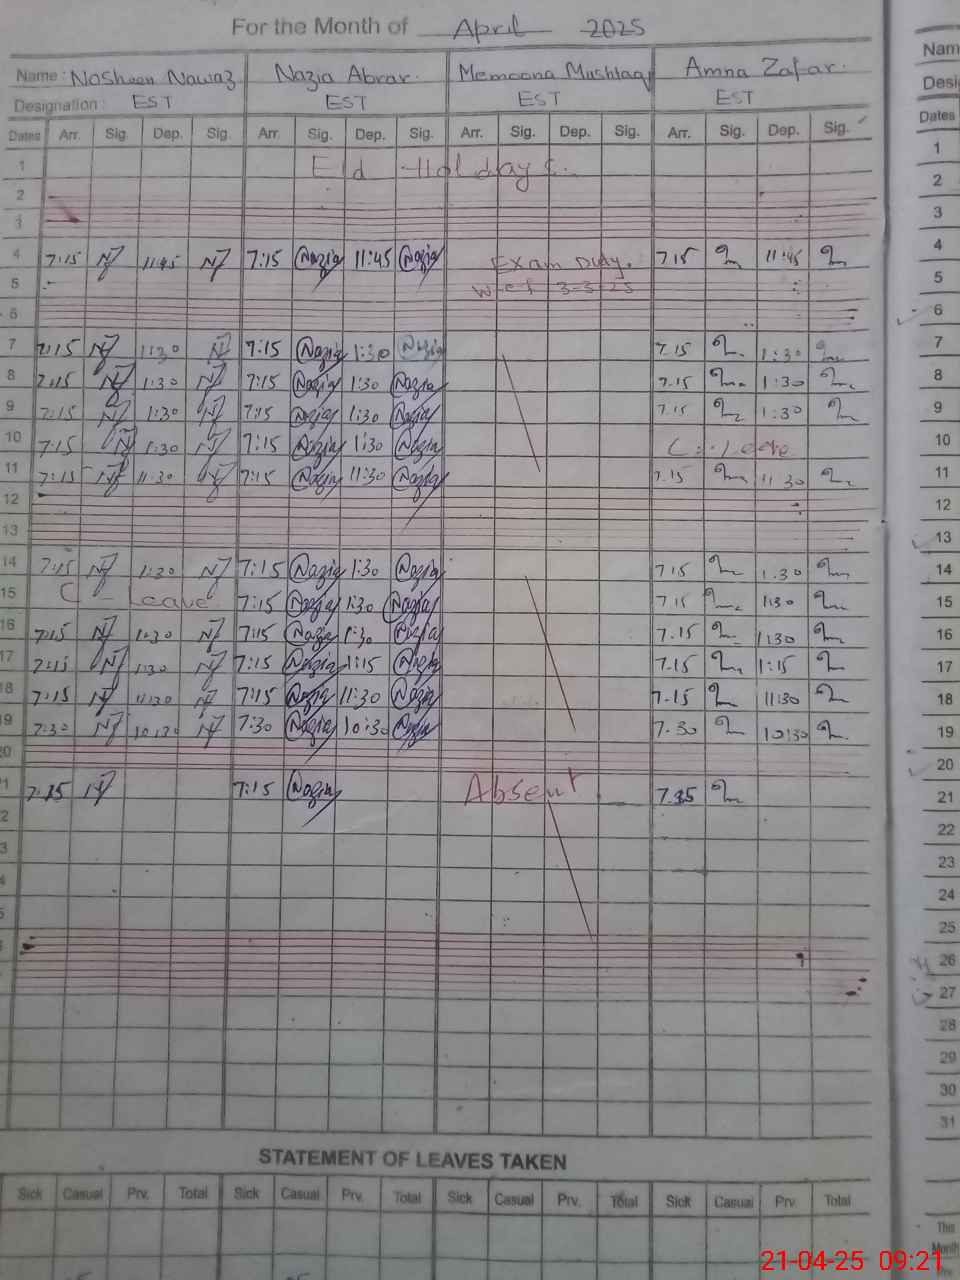 For the Month of April 2025
Name: Nosheen Nawaz Nazia Abrar. Memoona Mushtaq Amna Zafar. Nam
Designation: EST EST EST EST Desi
Dates Arr. Sig. Dep. Sig. Arr. Sig. Dep. Sig. Arr. Sig. Dep. Sig. Arr. Sig. Dep. Sig. Dates
1 Eid Holidays. 1
2 2
3 3
4 7:15 11:45 7:15 Nazia 11:45 Nazia Exam Duty. 7.15 11:45 4
5 w-e-f 3-3-25 5
6 6
7 7:15 1:30 7:15 Nazia 1:30 Nazia 7.15 1:30 7
8 7:15 1:30 7:15 Nazia 1:30 Nazia 7.15 1:30 8
9 7:15 1:30 7:15 Nazia 1:30 Nazia 7.15 1:30 9
10 7:15 1:30 7:15 Nazia 1:30 Nazia 10
11 7:15 11:30 7:15 Nazia 11:30 Nazia 7.15 11 30 11
12 12
13 13
14 7:15 1:30 7:15 Nazia 1:30 Nazia 7.15 1.30 14
15 C - Leave 7:15 Nazia 1:30 Nazia 7.15 1:30 15
16 7:15 1:30 7:15 Nazia 1:30 Nazia 7.15 1:30 16
17 7:15 1:30 7:15 Nazia 1:15 Nazia 7.15 1:15 17
18 7:15 11:30 7:15 Nazia 11:30 Nazia 7.15 11:30 18
19 7:30 10:30 7:30 Nazia 10:30 Nazia 7.30 10:30 19
20 20
1 7.15 7:15 Nazia Absent 21
2 22
3 23
4 24
5 25
26
27
28
29
30
31
STATEMENT OF LEAVES TAKEN
Sick Casual Prv. Total Sick Casual Prv. Total Sick Casual Prv. Total Sick Casual Prv. Total
This
Month
Prv
21-04-25 09:21